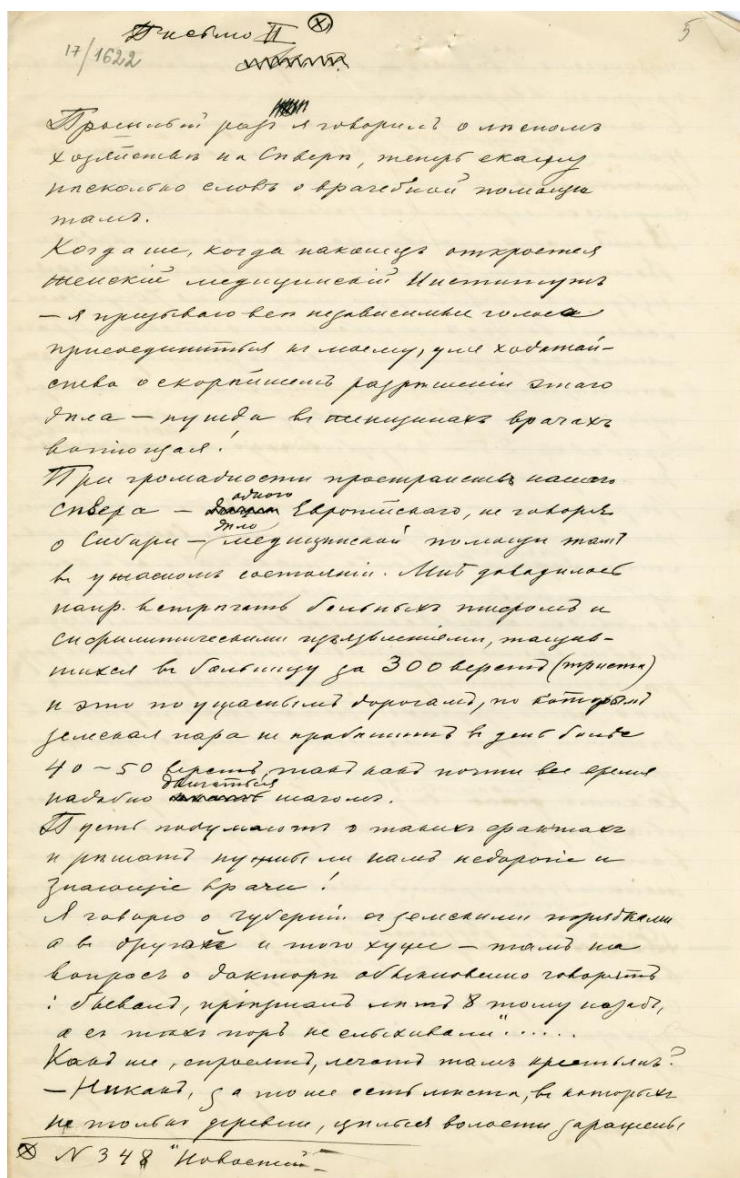 Письмо II ⊗
17/1622
5
Прошлый разъ я говорилъ о лѣсномъ
хозяйствѣ на Сѣверѣ, теперь скажу
нѣсколько словъ о врачебной помощи
тамъ.
Когда же, когда наконецъ откроется
женскій медицинскій Институтъ
— я призываю всѣ независимые голоса
присоединиться къ моему, для ходатай-
ства о скорѣйшемъ разрѣшеніи этаго
дѣла — нужда въ женщинахъ врачахъ
вопіющая!
При громадности пространствъ нашего
Сѣвера — одного Европейскаго, не говоря
о Сибири — дѣло медицинской помощи тамъ
въ ужасномъ состояніи. Мнѣ доводилось
напр. встрѣчать больныхъ тифомъ и
сифилитическими изъязвленіями, тащив-
шихся въ больницу за 300 верстъ (триста)
и это по ужаснымъ дорогамъ, по которымъ
земская пара не пробѣжитъ въ день больше
40–50 верстъ, такъ какъ почти все время
надобно двигаться шагомъ.
Пусть подумаютъ о такихъ фактахъ
и рѣшатъ нужны ли намъ недорогіе и
знающіе врачи!
Я говорю о губерніи съ земскими порядками
а въ другой и того хуже — тамъ на
вопросъ о докторѣ обыкновенно говорятъ
: бывалъ, пріѣзжалъ лѣтъ 8 тому назадъ,
а съ тѣхъ поръ не слыхивали".....
Какъ же, спросимъ, лечатъ тамъ крестьянъ?
— Никакъ, за то же есть мѣста, въ которыхъ
не только деревни, цѣлыя волости заражены
⊗ N 348 "Новостей"